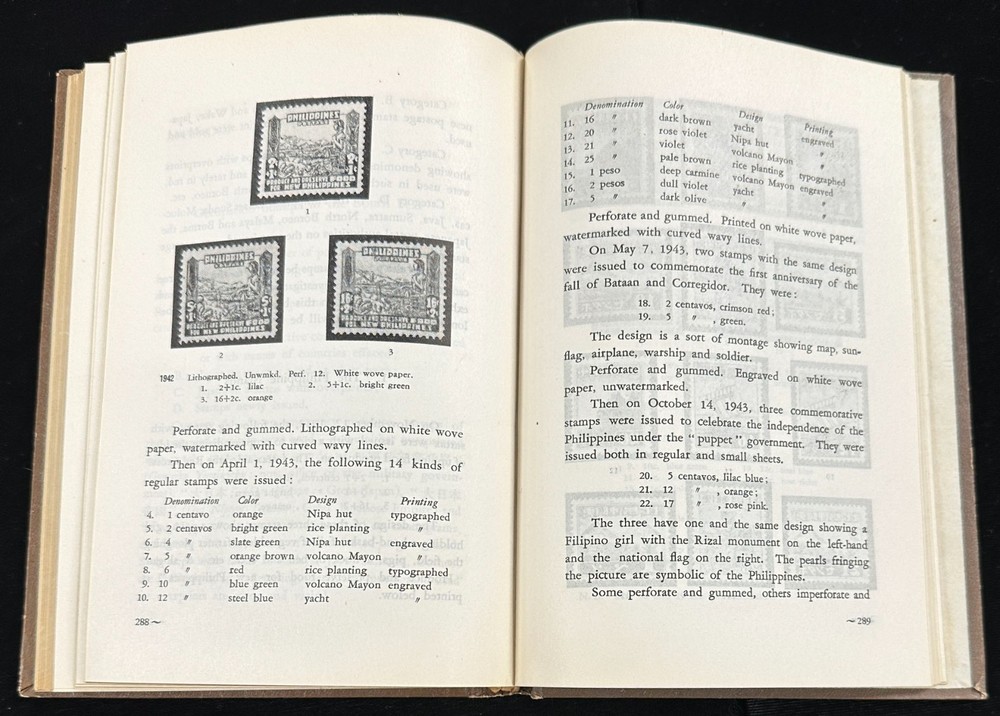 PHILIPPINES
PRODUCE AND CONSERVE FOOD
FOR NEW PHILIPPINES
1
PHILIPPINES
PRODUCE AND CONSERVE FOOD
FOR NEW PHILIPPINES
2
PHILIPPINES
PRODUCE AND CONSERVE FOOD
FOR NEW PHILIPPINES
3
1942 Lithographed. Unwmkd. Perf. 12. White wove paper.
1. 2+1c. lilac 2. 5+1c. bright green
3. 16+2c. orange
Perforate and gummed. Lithographed on white wove
paper, watermarked with curved wavy lines.
Then on April 1, 1943, the following 14 kinds of
regular stamps were issued :
Denomination Color Design Printing
4. 1 centavo orange Nipa hut typographed
5. 2 centavos bright green rice planting 〃
6. 4 〃 slate green Nipa hut engraved
7. 5 〃 orange brown volcano Mayon 〃
8. 6 〃 red rice planting typographed
9. 10 〃 blue green volcano Mayon engraved
10. 12 〃 steel blue yacht 〃
288 ~
Denomination Color Design Printing
11. 16 〃 dark brown yacht engraved
12. 20 〃 rose violet Nipa hut 〃
13. 21 〃 violet volcano Mayon 〃
14. 25 〃 pale brown rice planting typographed
15. 1 peso deep carmine volcano Mayon engraved
16. 2 pesos dull violet yacht 〃
17. 5 〃 dark olive 〃 〃
Perforate and gummed. Printed on white wove paper,
watermarked with curved wavy lines.
On May 7, 1943, two stamps with the same design
were issued to commemorate the first anniversary of the
fall of Bataan and Corregidor. They were :
18. 2 centavos, crimson red ;
19. 5 〃 , green.
The design is a sort of montage showing map, sun-
flag, airplane, warship and soldier.
Perforate and gummed. Engraved on white wove
paper, unwatermarked.
Then on October 14, 1943, three commemorative
stamps were issued to celebrate the independence of the
Philippines under the " puppet " government. They were
issued both in regular and small sheets.
20. 5 centavos, lilac blue ;
21. 12 〃 , orange ;
22. 17 〃 , rose pink.
The three have one and the same design showing a
Filipino girl with the Rizal monument on the left-hand
and the national flag on the right. The pearls fringing
the picture are symbolic of the Philippines.
Some perforate and gummed, others imperforate and
~ 289